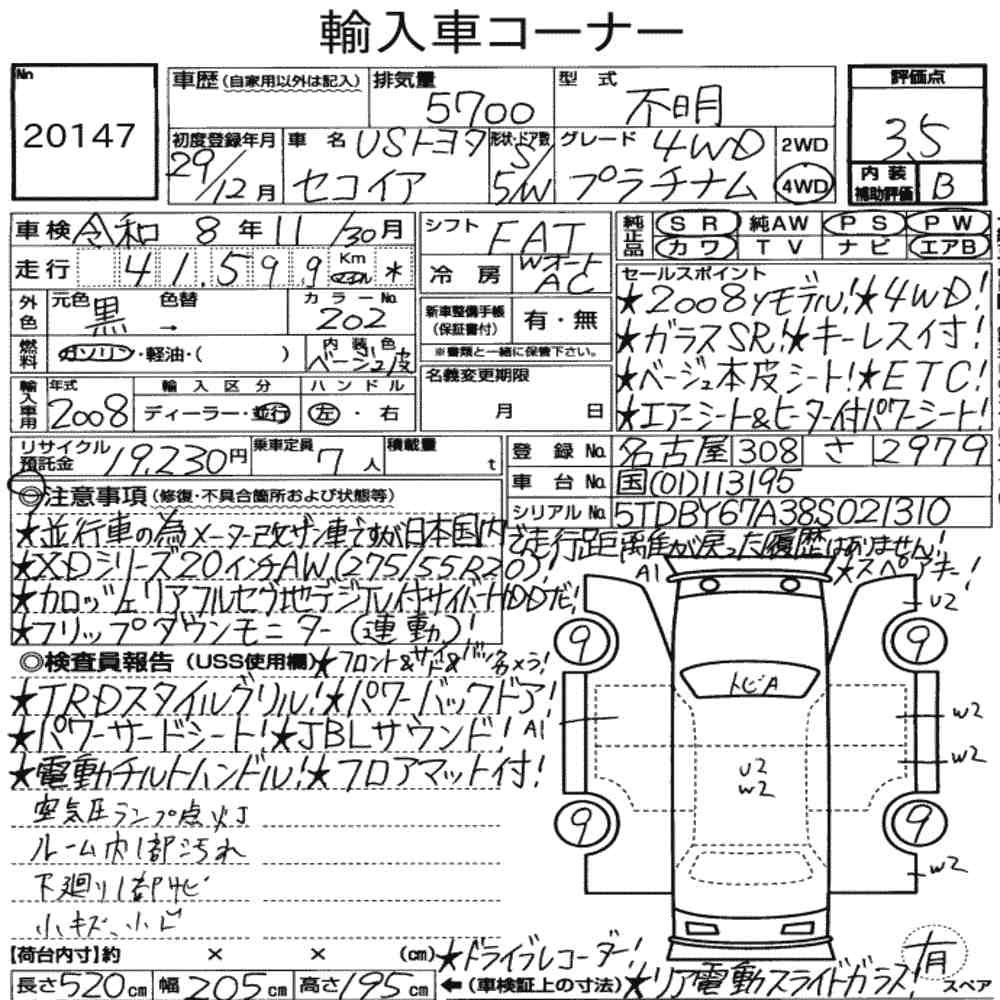 輸入車コーナー
No 20147
車歴(自家用以外は記入) 排気量 5700 型式 不明 評価点 3.5
初度登録年月 29/12月 車名 USトヨタ セコイア 形状・ドア数 5/5W グレード 4WD プラチナム 2WD 4WD 内装補助評価 B
車検 令和 8年 11/30月 シフト FAT 純正品 SR 純AW PS PW
カワ TV ナビ エアB
走行 41,599 Km * 冷房 Wオート AC
外色 元色 黒 色替 → カラーNo. 202 新車整備手帳(保証書付) 有・無
※書類と一緒に保管下さい。
燃料 ガソリン・軽油・( ) 内装色 ベージュ皮
輸入車用 年式 2008 輸入区分 ディーラー・並行 ハンドル 左・右 名義変更期限 月 日
セールスポイント
★2008yモデル!★4WD!
★ガラスSR!★キーレス付!
★ベージュ本皮シート!★ETC!
★エアーシート&ヒーター付パワーシート!
リサイクル預託金 19,230円 乗車定員 7人 積載量 t 登録No. 名古屋 308 さ 2979
車台No. 国(01)113195
シリアルNo. 5TDBY67A38S021310
◎注意事項(修復・不具合箇所および状態等)
★並行車の為メーター改ザン車ですが日本国内で走行距離が戻った履歴はありません!
★XDシリーズ20インチAW(275/55R20)! ★スペアキー!
★カロッツェリアフルセグ地デジTV付サイバーHDDナビ!
★フリップダウンモニター(連動)!
◎検査員報告(USS使用欄)★フロント&サイド&バックカメラ!
★TRDスタイルグリル!★パワーバックドア!
★パワーサードシート!★JBLサウンド!
★電動チルトハンドル!★フロアマット付!
空気圧ランプ点灯
ルーム内1部汚れ
下廻り1部サビ
小キズ、小ド
A1
U2
9 9
トビA
A1
W2
W2
U2
W2
9 9
W2
【荷台内寸】約 × × (cm) ★ドライブレコーダー! 有
長さ520cm 幅205cm 高さ195cm ←(車検証上の寸法)★リア電動スライドガラス! スペア